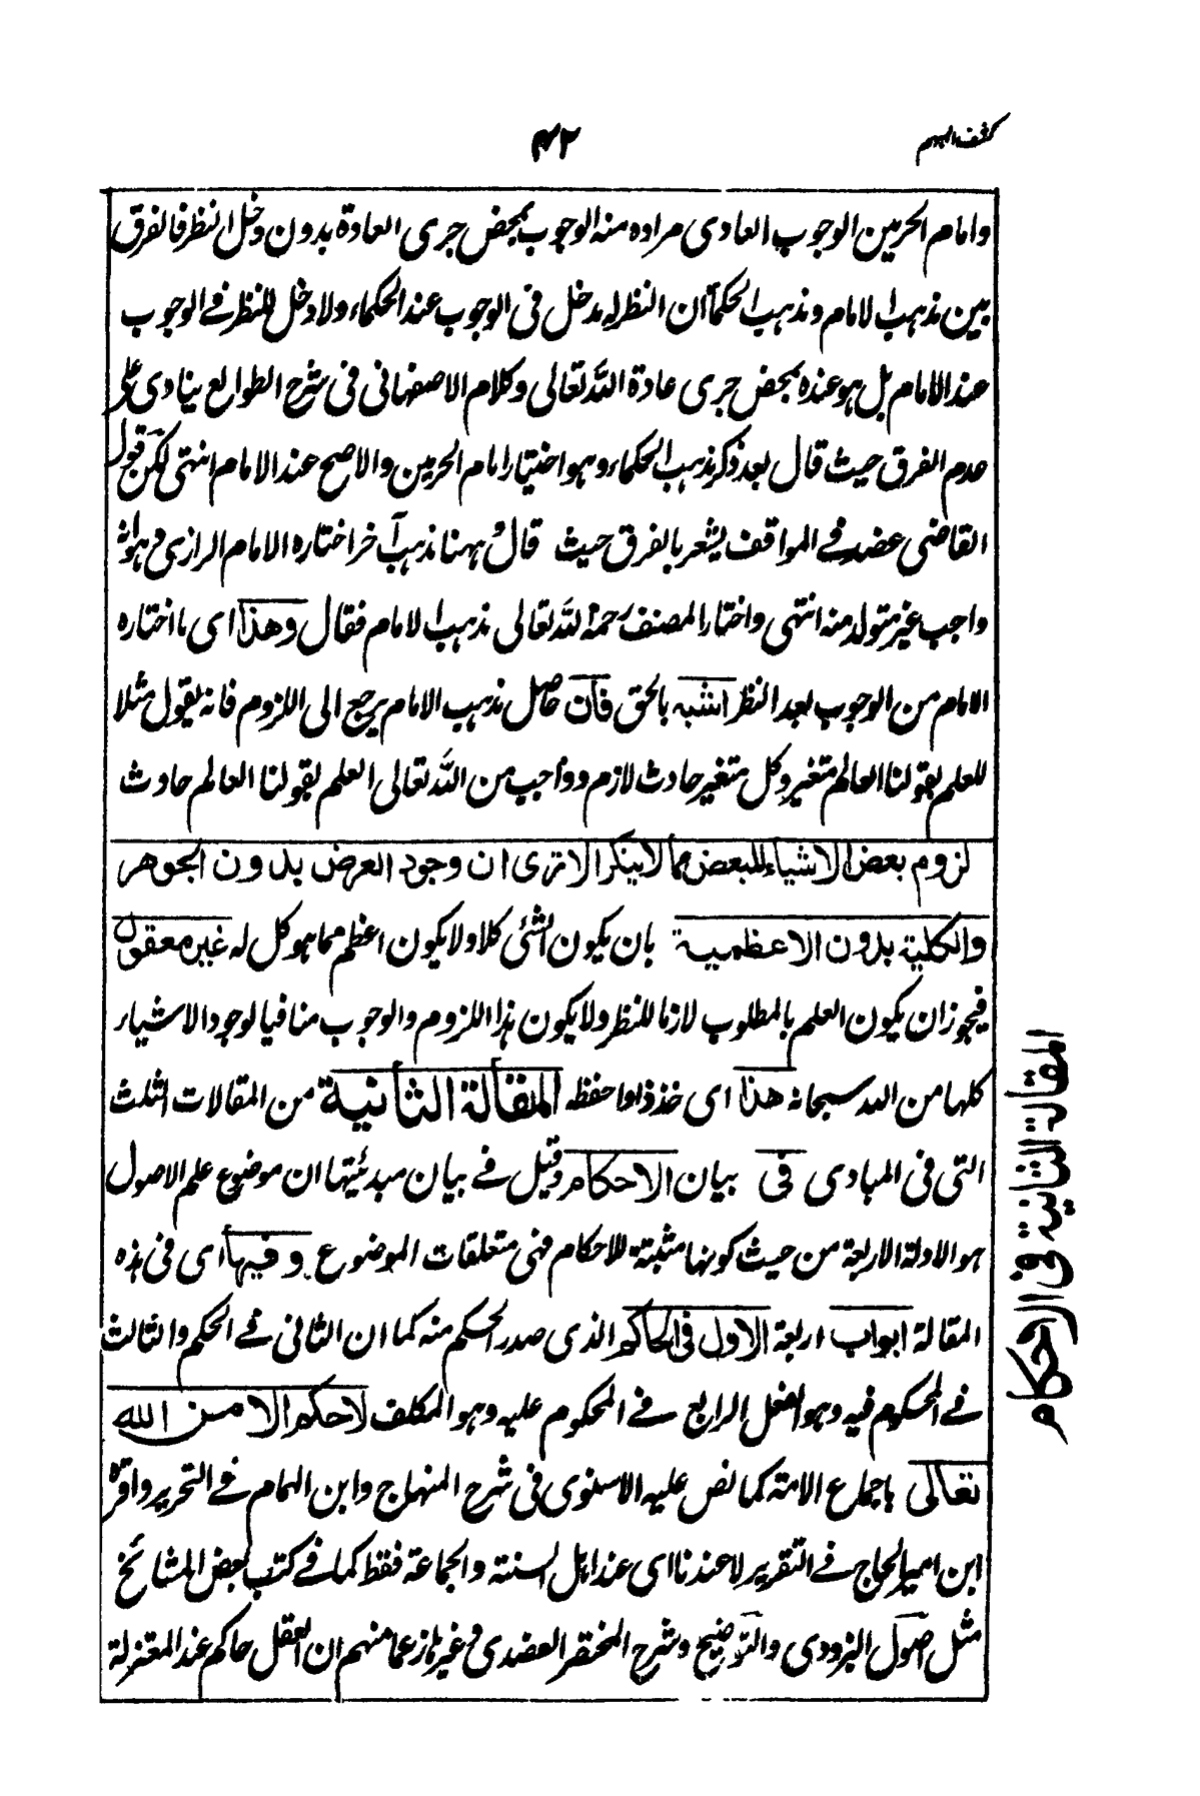 كشف المبهم
٤٢
وامام الحرمين الوجوب العادى مراده منه الوجوب بمحض جرى العادة بدون دخل النظر فالفرق
بين مذهب الامام ومذهب الحكماء ان النظر له مدخل فى الوجوب عند الحكماء ولا دخل للنظر فے الوجوب
عند الامام بل هو عنده بمحض جرى عادة الله تعالى وكلام الاصفهانى فى شرح الطوالع ينادى على
عدم الفرق حيث قال بعد ذكر مذهب الحكماء وهو اختيار امام الحرمين والاصح عند الامام انتهى لكن قول
القاضى عضد فے المواقف يشعر بالفرق حيث قال وههنا مذهب آخر اختاره الامام الرازى وهو انه
واجب غير متولد منه انتهى واختار المصنف رحمة الله تعالى مذهب الامام فقال وهذا اى ما اختاره
الامام من الوجوب بعد النظر اشبه بالحق فان حاصل مذهب الامام يرجع الى اللزوم فانه يقول مثلا
للعلم بقولنا العالم متغير وكل متغير حادث لازم وواجب من الله تعالى العلم بقولنا العالم حادث
لزوم بعض الاشياء للبعض مما لا ينكر الا ترى ان وجود العرض بدون الجوهر
والكلية بدون الاعظمية بان يكون الشئى كلا ولا يكون اعظم مما هو كل له غير معقول
فيجوز ان يكون العلم بالمطلوب لازما للنظر ولا يكون هذا اللزوم والوجوب منافيا لوجود الاشياء
كلها من الله سبحانه هذا اى خذ ذا واحفظه المقالة الثانية من المقالات الثلث
التى فى المبادى فى بيان الاحكام وقيل فے بيان مبدئيتها ان موضوع علم الاصول
هو الادلة الاربعة من حيث كونها مثبتة للاحكام فهى متعلقات الموضوع وفيها اى فى هذه
المقالة ابواب اربعة الاول فى الحاكم الذى صدر الحكم منه كما ان الثانى فے الحكم والثالث
فے المحكوم فيه وهو الفعل الرابع فے المحكوم عليه وهو المكلف لاحكم الا من الله
تعالى باجماع الامة كما نص عليه الاسنوى فى شرح المنهاج وابن الهمام فے التحرير واقره
ابن امير الحاج فے التقرير لا عندنا اى عند اهل السنة والجماعة فقط كما فے كتب بعض المشائخ
مثل اصول البزودى والتوضيح وشرح المختصر العضدى وغيرها زعما منهم ان العقل حاكم عند المعتزلة
المقالة الثانية فى الاحكام